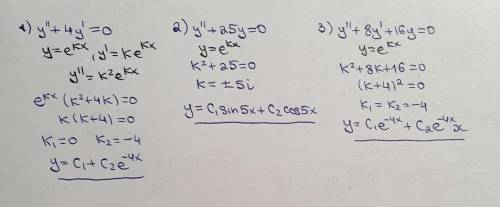 1) y″+4y′=0
y=e^{kx}, y′=ke^{kx}
y″=k²e^{kx}
e^{kx}(k²+4k)=0
k(k+4)=0
k₁=0 k₂=-4
y=C₁+C₂e^{-4x}
2) y″+25y=0
y=e^{kx}
k²+25=0
k=±5i
y=C₁sin5x+C₂cos5x
3) y″+8y′+16y=0
y=e^{kx}
k²+8k+16=0
(k+4)²=0
k₁=k₂=-4
y=C₁e^{-4x}+C₂e^{-4x}x